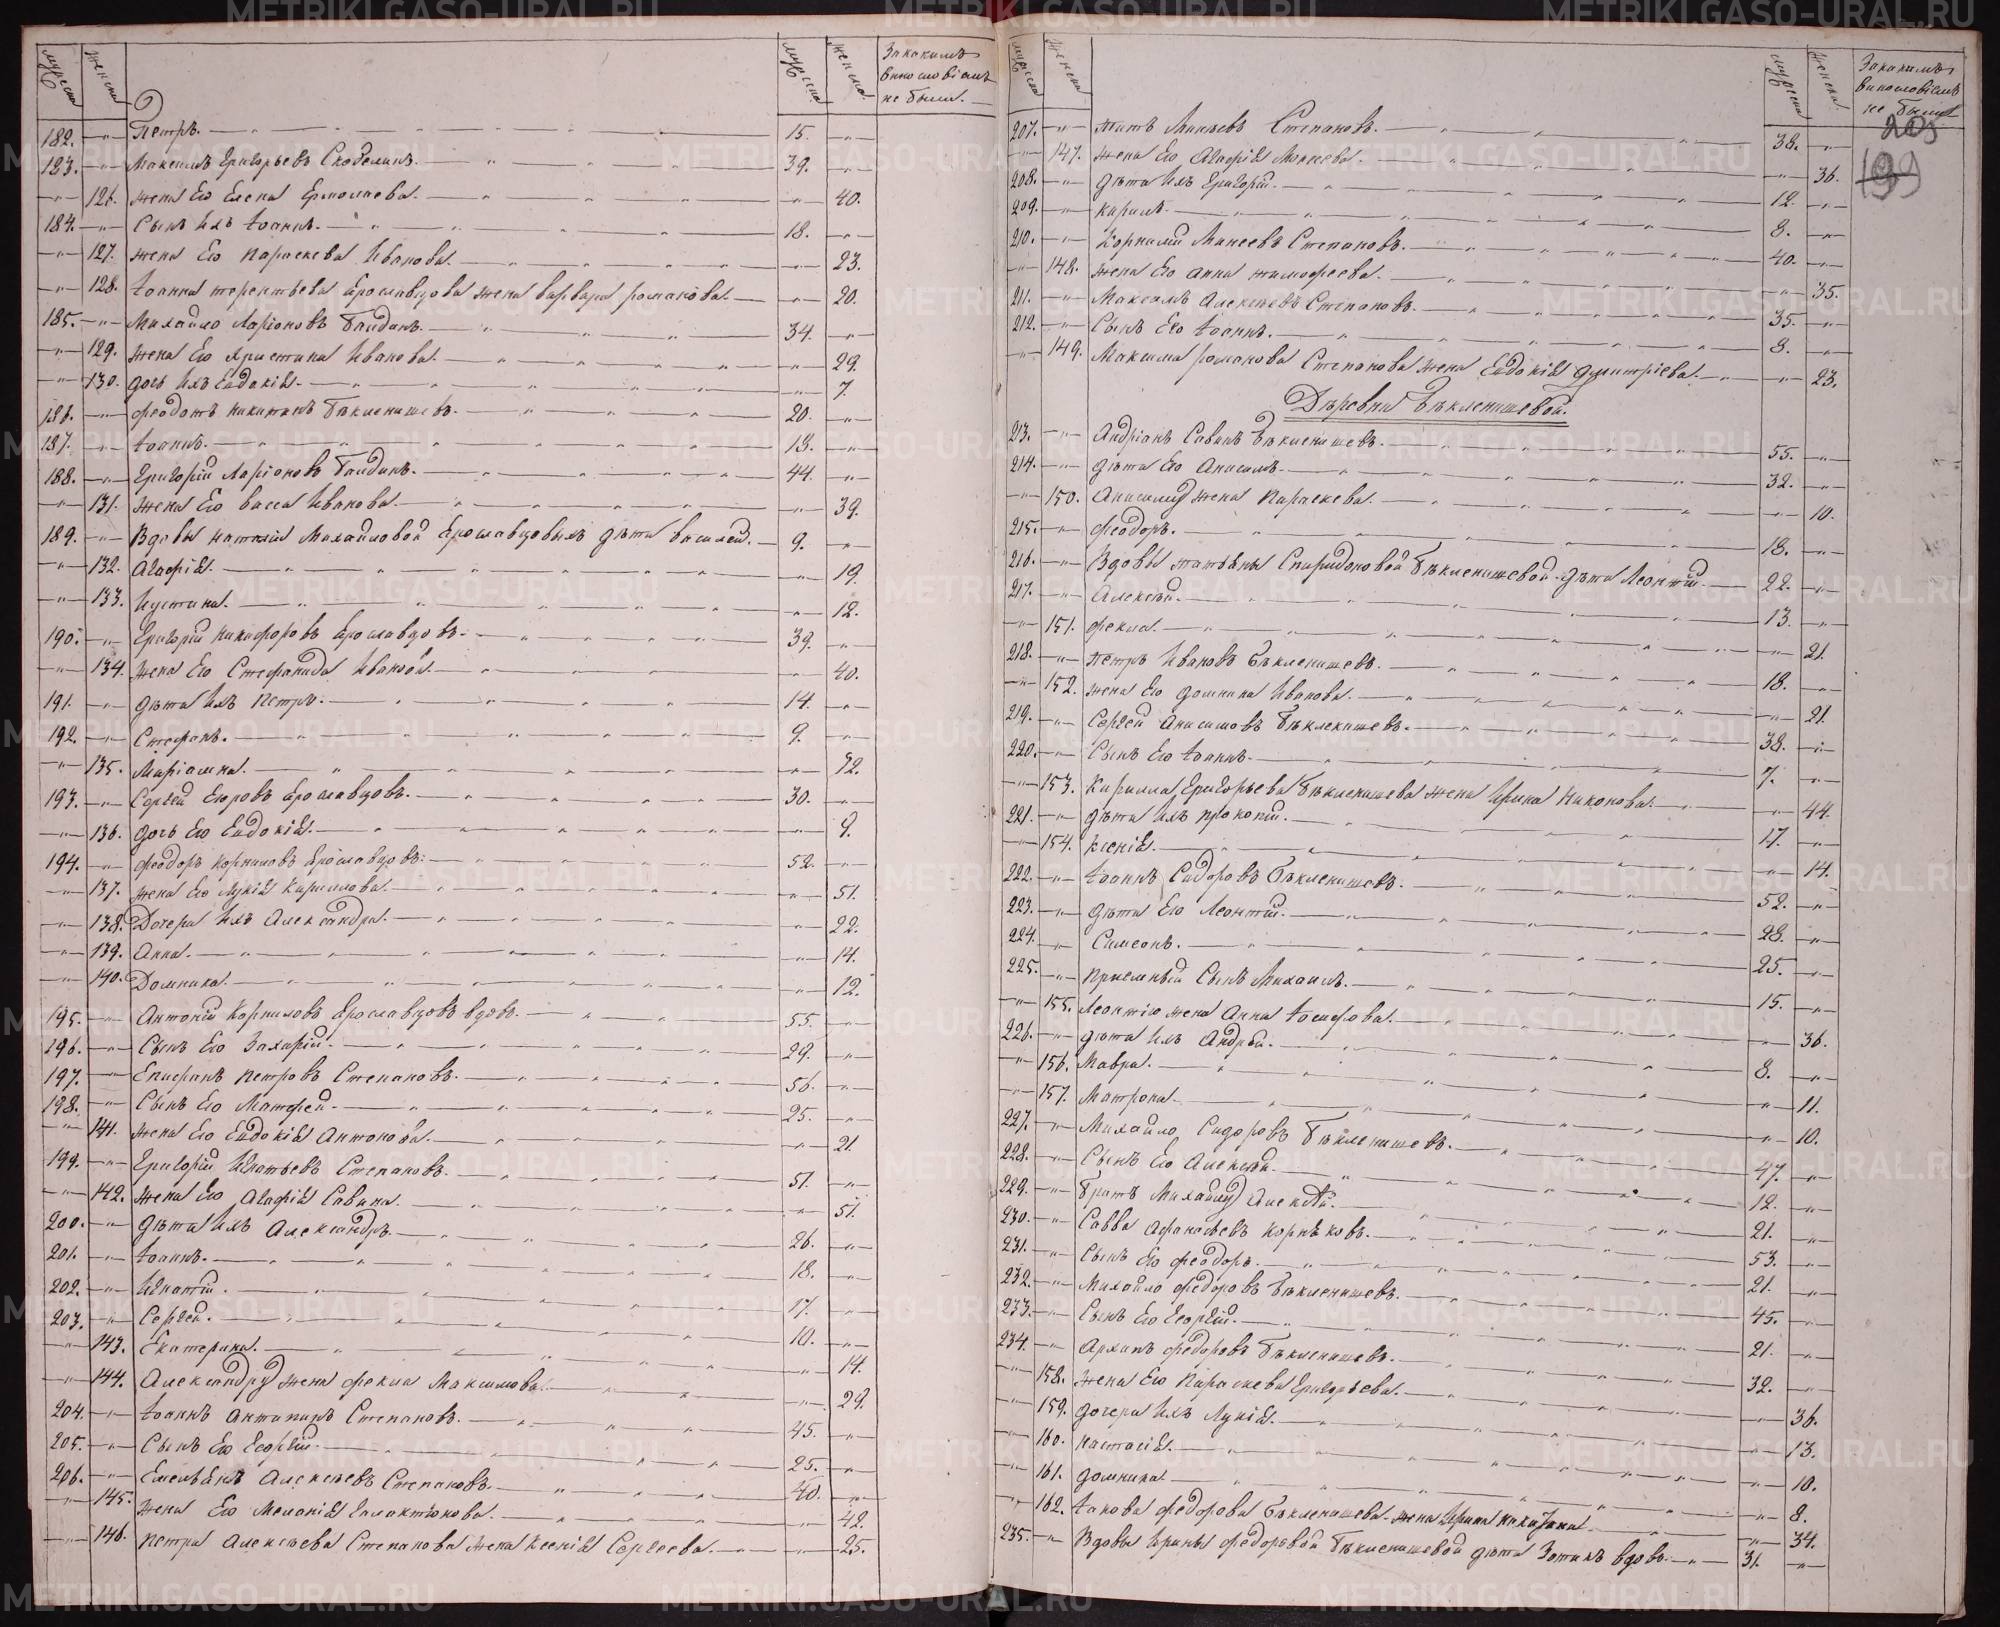 мужеска женска мужеска женска За какимъ
винословіемъ
не были.
182. —"— Петръ. 15. —"—
183. —"— Максимъ Григорьевъ Скобелинъ. 39. —"—
—"— 126. жена Его Елена Ермолаева. —"— 40.
184. —"— Сынъ Ихъ Іоаннъ. 18. —"—
—"— 127. жена Его Параскева Иванова. —"— 23.
—"— 128. Іоанна терентьева Ярославцова жена варвара романова. —"— 20.
185. —"— Михайло Ларіоновъ Гаидинъ. 34. —"—
—"— 129. жена Его Христина Иванова. —"— 29.
—"— 130. дочь Ихъ Евдокія. —"— 7.
186. —"— феодотъ никитинъ Бѣкленищевъ. 20. —"—
187. —"— Іоаннъ. 13. —"—
188. —"— Григорій Ларіоновъ Гаидинъ. 44. —"—
—"— 131. жена Его васса Иванова. —"— 39.
189. —"— Вдовы наталіи Михайловой Ярославцовыхъ дѣти василей. 9. —"—
—"— 132. Агафія. —"— 19.
—"— 133. Иустина. —"— 12.
190. —"— Григорій никифоровъ Ярославцовъ. 39. —"—
—"— 134. жена Его Стефанида Иванова. —"— 40.
191. —"— дѣти Ихъ петръ. 14. —"—
192. —"— Стефанъ. 9. —"—
—"— 135. Маріамна. —"— 12.
193. —"— Сергей Егоровъ Ярославцовъ. 30. —"—
—"— 136. дочь Его Евдокія. —"— 9.
194. —"— феодоръ корниловъ Ярославцовъ. 52. —"—
—"— 137. жена Его Лукія Кирилова. —"— 51.
—"— 138. Дочери Ихъ Александра. —"— 22.
—"— 139. Анна. —"— 14.
—"— 140. Домника. —"— 12.
195. —"— Антоній Корниловъ Ярославцовъ вдовъ. 55. —"—
196. —"— Сынъ Его Захарій. 29. —"—
197. —"— Епифанъ петровъ Степановъ. 56. —"—
198. —"— Сынъ Его Матфей. 25. —"—
—"— 141. жена Его Евдокія Антонова. —"— 21.
199. —"— Григорій Игнатьевъ Степановъ. 51. —"—
—"— 142. жена Его Агафія Савина. —"— 51.
200. —"— дѣти Ихъ Александръ. 26. —"—
201. —"— Іоаннъ. 18. —"—
202. —"— Игнатій. 17. —"—
203. —"— Сергей. 10. —"—
—"— 143. Екатерина. —"— 14.
—"— 144. Александру жена фекла Максимова. —"— 29.
204. —"— Іоаннъ антипинъ Степановъ. 45. —"—
205. —"— Сынъ Его Георгій. 25. —"—
206. —"— Емельянъ Алексѣевъ Степановъ. 40. —"—
—"— 145. жена Его Меланія галактіонова. —"— 42.
—"— 146. петра Алексѣева Степанова жена ксенія Сергеева. —"— 25.
мужеска женска мужеска женска За какимъ
винословіемъ
не были
203
199
207. —"— титъ Макѣевъ Степановъ. 38. —"—
—"— 147. жена Его Агафія Мокеева. —"— 36.
208. —"— дѣти Ихъ Григорій. 12. —"—
209. —"— кирилъ. 8. —"—
210. —"— Корнилій Макеевъ Степановъ. 40. —"—
—"— 148. жена Его анна тимофеева. —"— 35.
211. —"— Максимъ Алексѣевъ Степановъ. 35. —"—
212. —"— Сынъ Его Іоаннъ. 8. —"—
—"— 149. Максима романова Степанова жена Евдокія дмитріева. —"— 23.
Деревни Бѣкленищевой.
213. —"— Андріанъ Савинъ Бѣкленищевъ. 55. —"—
214. —"— дѣти Его Анисимъ. 32. —"—
—"— 150. Анисиму жена Параскева. —"— 10.
215. —"— феодоръ. 18. —"—
216. —"— Вдовы татьяны Спиридоновой Бѣкленищевой дѣти Леонтій. 22. —"—
217. —"— Алексѣй. 13. —"—
—"— 151. фекла. —"— 21.
218. —"— петръ Ивановъ Бѣкленищевъ. 18. —"—
—"— 152. жена Его домника Иванова. —"— 21.
219. —"— Сергей Анисимовъ Бѣкленищевъ. 38. —"—
220. —"— Сынъ Его Іоаннъ. 7. —"—
—"— 153. Кирилла Григорьева Бѣкленищева жена Ирина никонова. —"— 44.
221. —"— дѣти Ихъ прокопій. 17. —"—
—"— 154. ксенія. —"— 14.
222. —"— Іоаннъ Сидоровъ Бѣкленищевъ. 52. —"—
223. —"— дѣти Его Леонтій. 28. —"—
224. —"— Симеонъ. 25. —"—
225. —"— приемный Сынъ Михаилъ. 15. —"—
—"— 155. Леонтію жена Анна Іосифова. —"— 36.
226. —"— дѣти Ихъ Андрѣй. 8. —"—
—"— 156. Мавра. —"— 11.
—"— 157. Матрона. —"— 10.
227. —"— Михайло Сидоровъ Бѣкленищевъ. 47. —"—
228. —"— Сынъ Его Алексѣй. 12. —"—
229. —"— Братъ Михайлу Алексѣй. 21. —"—
230. —"— Савва афанасьевъ корнѣковъ. 53. —"—
231. —"— Сынъ Его феодоръ. 21. —"—
232. —"— Михайло федоровъ Бѣкленищевъ. 45. —"—
233. —"— Сынъ Его Георгій. 21. —"—
234. —"— Архипъ федоровъ Бѣкленищевъ. 32. —"—
—"— 158. жена Его Параскева Григорьева. —"— 36.
—"— 159. дочери Ихъ Лукія. —"— 13.
—"— 160. настасія. —"— 10.
—"— 161. домника. —"— 8.
—"— 162. Іакова федорова Бѣкленищева жена Ирина никитина. —"— 34.
235. —"— Вдовы Ирины федоровой Бѣкленищевой дѣти Зотикъ вдовъ. 31. —"—